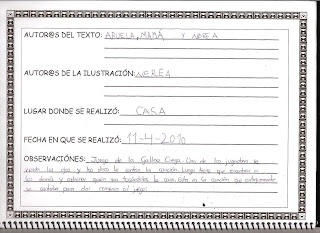 AUTOR@S DEL TEXTO: ABUELA, MAMÁ Y NEREA
AUTOR@S DE LA ILUSTRACIÓN: NEREA
LUGAR DONDE SE REALIZÓ: CASA
FECHA EN QUE SE REALIZÓ: 11-4-2010
OBSERVACIÓNES: Juego de la Gallina Ciega. Uno de los jugadores se
venda los ojos y los otros le cantan la canción. Luego tiene que
los demás y adivinar quien es la cara. Esta es la canción que
se cantaba para dar comienzo al juego.